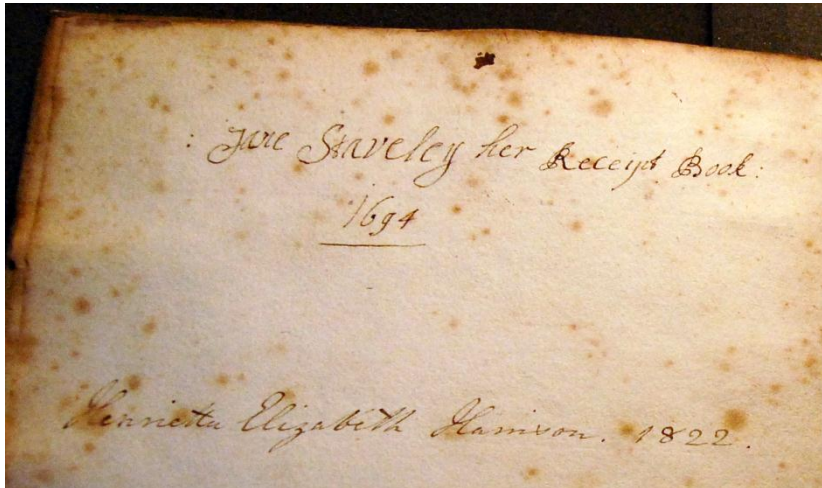 : Jane Staveley her Receipt Book:
1694
Henrietta Elizabeth Harrison. 1822.